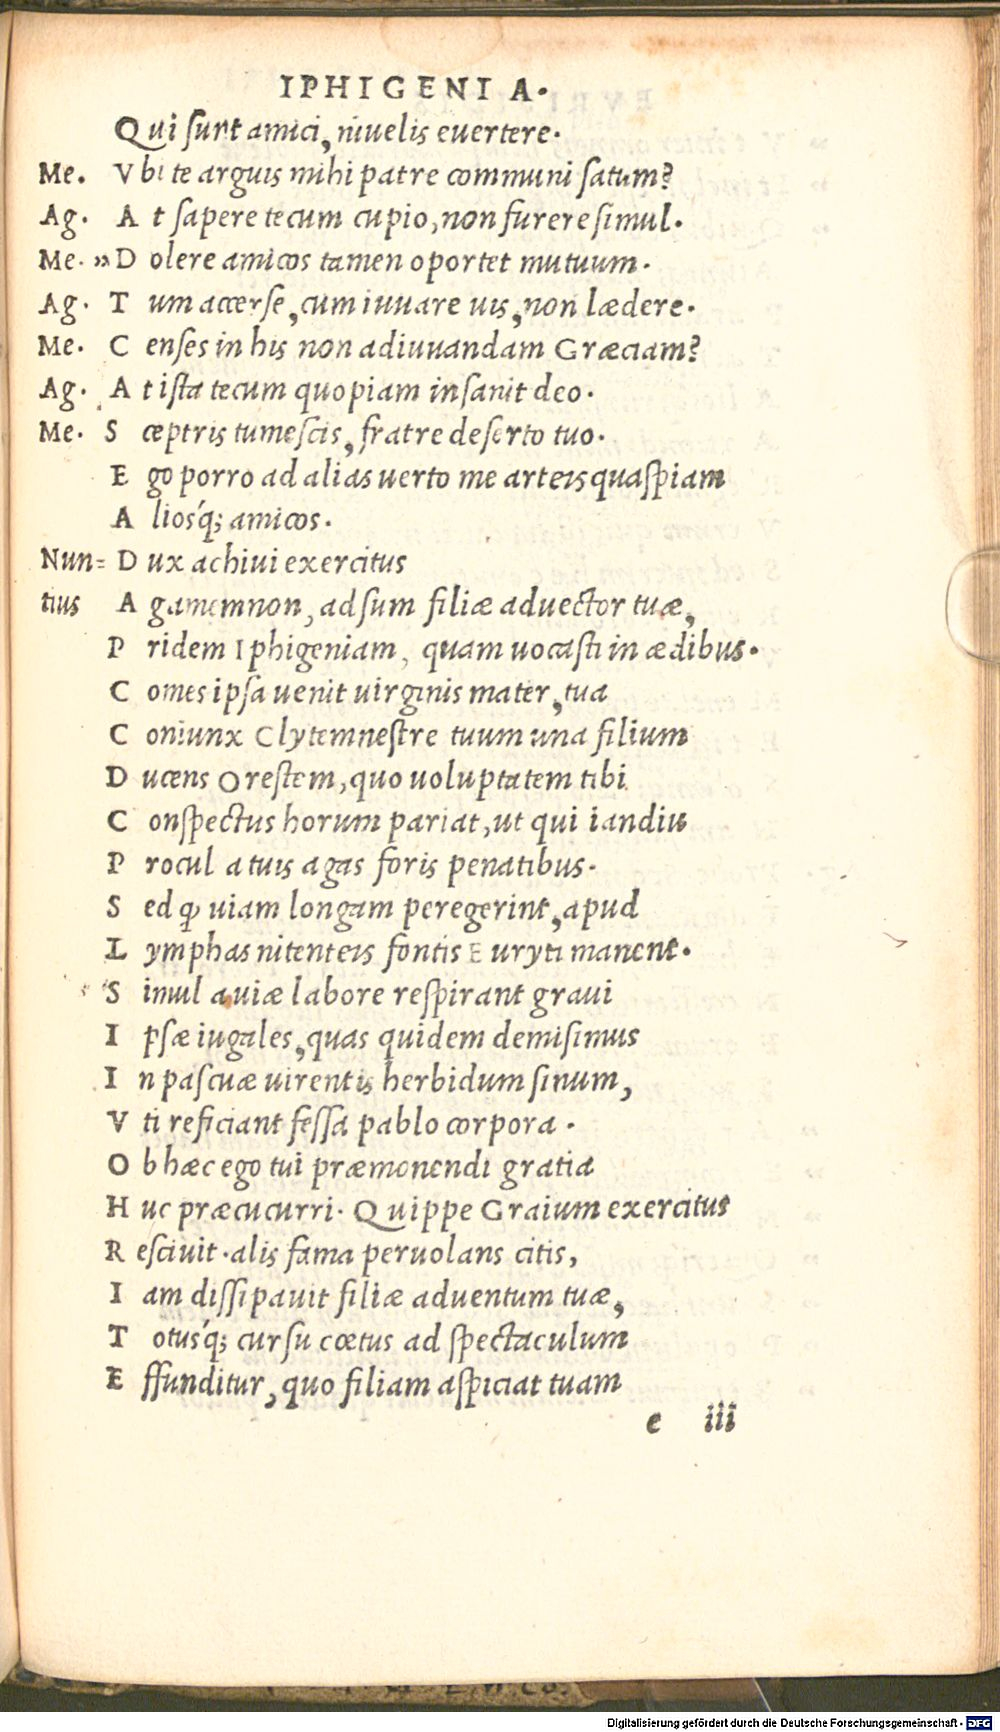 IPHIGENIA.
Qui sunt amici, ni uelis euertere.
Me. Vbi te arguis mihi patre communi satum?
Ag. At sapere tecum cupio, non furere simul.
Me. »Dolere amicos tamen oportet mutuum.
Ag. Tum accerse, cum iuuare uis, non lædere.
Me. Censes in his non adiuuandam Græciam?
Ag. At ista tecum quopiam insanit deo.
Me. Sceptris tumescis, fratre deserto tuo.
Ego porro ad alias uerto me arteis quaspiam
Aliosq́; amicos.
Nun= Dux achiui exercitus
tius Agamemnon, adsum filiæ aduector tuæ,
Pridem Iphigeniam, quam uocasti in ædibus.
Comes ipsa uenit uirginis mater, tua
Coniunx Clytemnestre tuum una filium
Ducens Orestem, quo uoluptatem tibi
Conspectus horum pariat, ut qui iandiu
Procul a tuis agas foris penatibus.
Sed ꝙ uiam longam peregerint, apud
Lymphas nitenteis fontis Euryti manent.
Simul a uiæ labore respirant graui
Ipsæ iugales, quas quidem demisimus
In pascuæ uirentis herbidum sinum,
Vti reficiant fessa pablo corpora.
Ob hæc ego tui præmonendi gratia
Huc præcucurri. Quippe Graium exercitus
Resciuit. alis fama peruolans citis,
Iam dissipauit filiæ aduentum tuæ,
Totusq́; cursu cœtus ad spectaculum
Effunditur, quo filiam aspiciat tuam
e iii
Digitalisierung gefördert durch die Deutsche Forschungsgemeinschaft - DFG